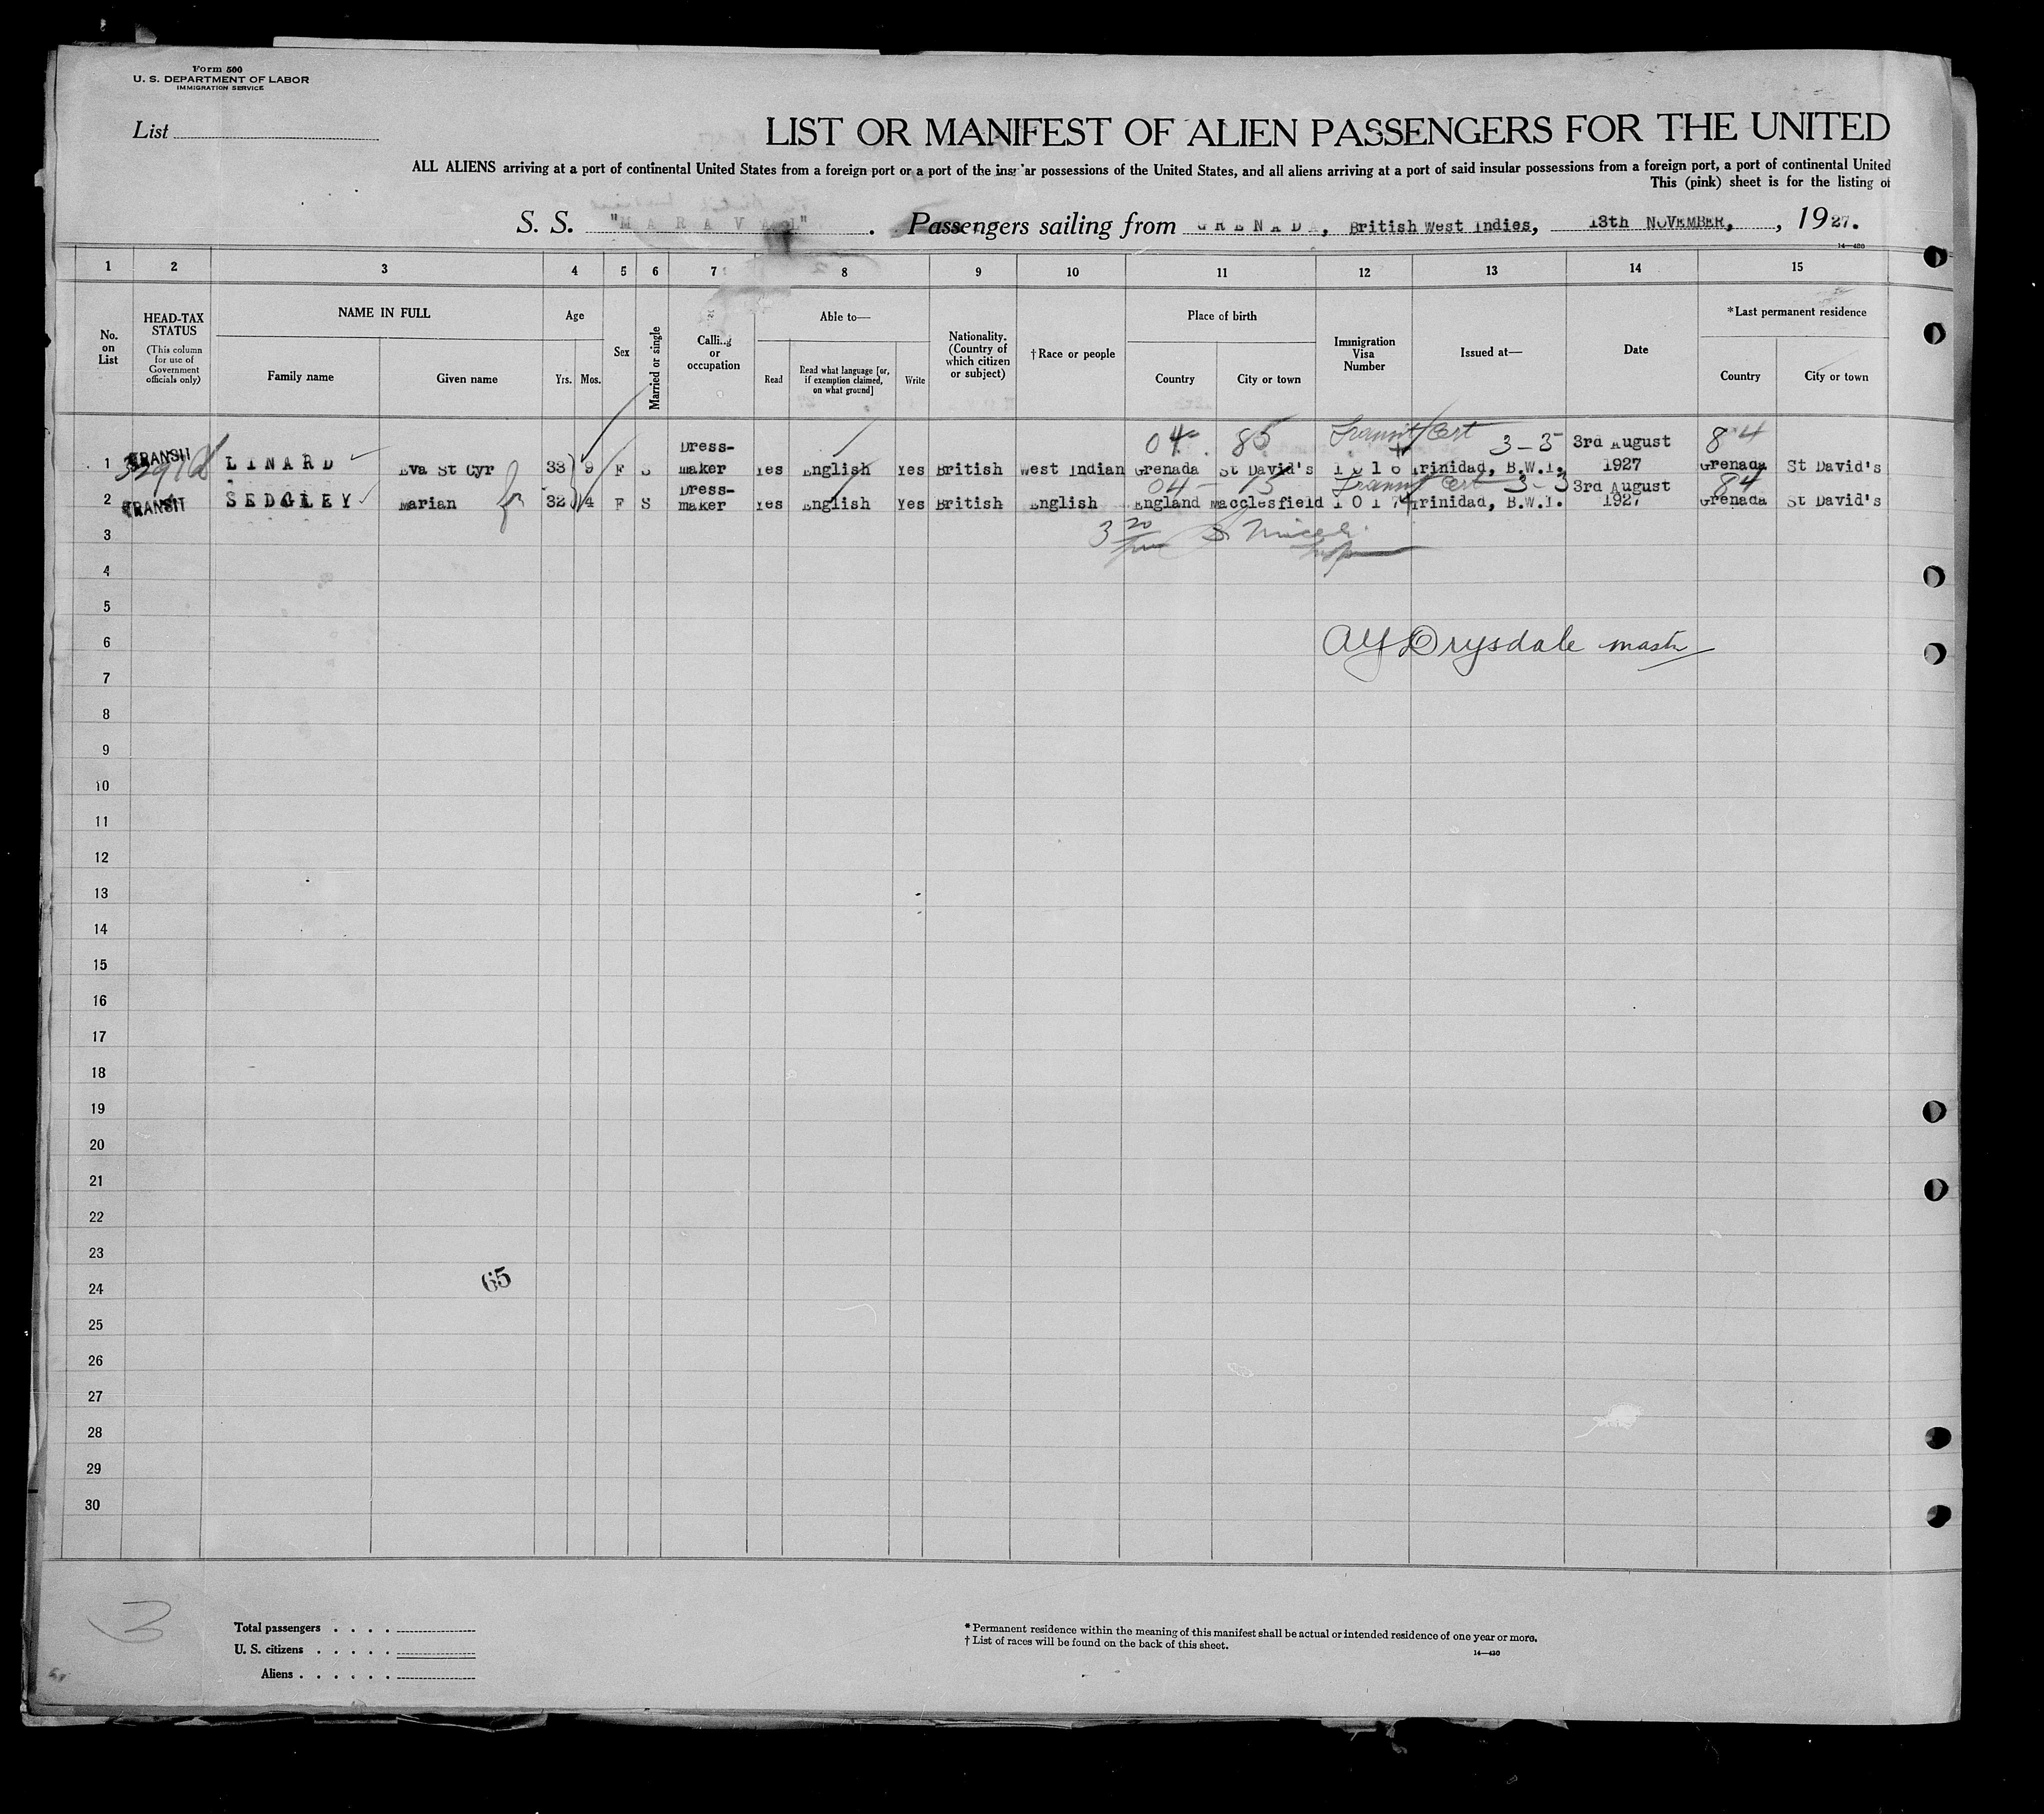 Form 500
U. S. DEPARTMENT OF LABOR
IMMIGRATION SERVICE
List
LIST OR MANIFEST OF ALIEN PASSENGERS FOR THE UNITED
ALL ALIENS arriving at a port of continental United States from a foreign port or a port of the insular possessions of the United States, and all aliens arriving at a port of said insular possessions from a foreign port, a port of continental United
This (pink) sheet is for the listing of
S. S. "MARAVAL". Passengers sailing from GRENADA, British West Indies, 13th NOVEMBER, , 1927.
14—430
1 2 3 4 5 6 7 8 9 10 11 12 13 14 15
No. on List
HEAD-TAX STATUS
(This column for use of Government officials only)
NAME IN FULL
Family name
Given name
Age
Yrs. Mos.
Sex
Married or single
Calling or occupation
Able to—
Read
Read what language [or, if exemption claimed, on what ground]
Write
Nationality. (Country of which citizen or subject)
†Race or people
Place of birth
Country
City or town
Immigration Visa Number
Issued at—
Date
*Last permanent residence
Country
City or town
04 85 Transit Cert 3-3 84
1 TRANSIT LINARD Eva St Cyr 33 9 F S Dress-maker Yes English Yes British West Indian Grenada St David's 1016 Trinidad, B.W.I. 3rd August 1927 Grenada St David's
04 - 13 Transit Cert 3-3 84
2 TRANSIT SEDGLEY Marian 32 4 F S Dress-maker Yes English Yes British English England Macclesfield 1017 Trinidad, B.W.I. 3rd August 1927 Grenada St David's
3
4
5
6 Drysdale master
7
8
9
10
11
12
13
14
15
16
17
18
19
20
21
22
23
65
24
25
26
27
28
29
30
3
Total passengers . . . .
U. S. citizens . . . . .
Aliens . . . . . .
* Permanent residence within the meaning of this manifest shall be actual or intended residence of one year or more.
† List of races will be found on the back of this sheet.
14—430